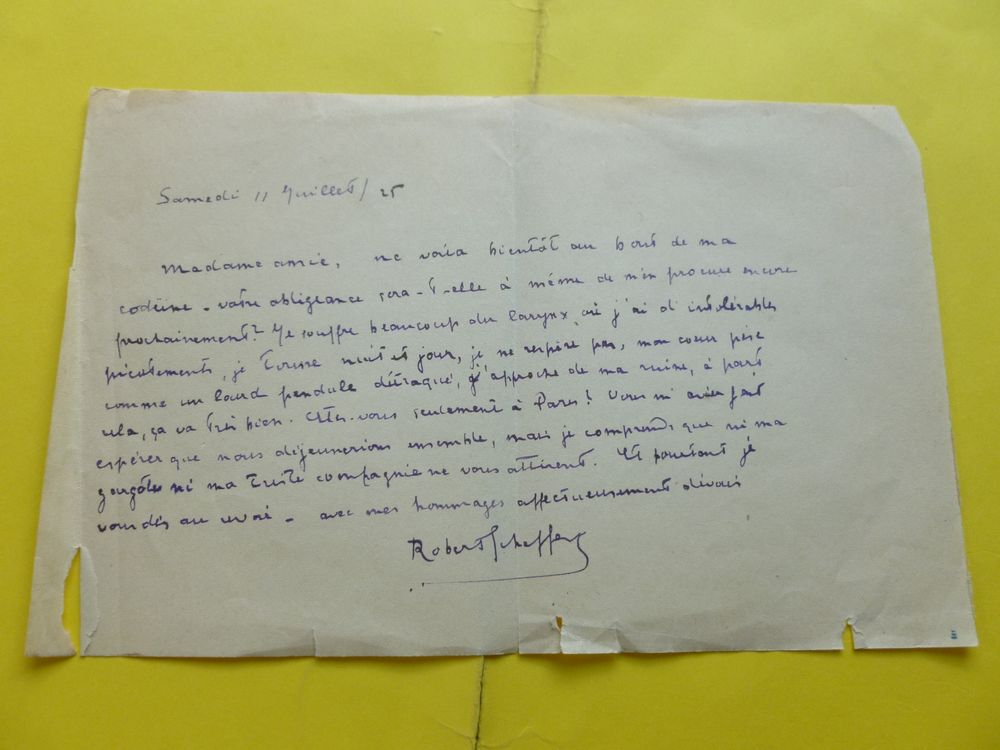 Samedi 11 Juillet / 25
Madame amie, me voici bientôt au bout de ma
codéine - votre obligeance sera-t-elle à même de m'en procurer encore
prochainement? Je souffre beaucoup du larynx où j'ai d'intolérables
picotements, je tousse nuit et jour, je ne respire pas, mon coeur pèse
comme un lourd pendule détraqué, j'approche de ma ruine, à part
cela, ça va très bien. Etes-vous seulement à Paris? Vous m'aviez fait
espérer que nous déjeunerions ensemble, mais je comprends que ni ma
gargote ni ma triste compagnie ne vous attirent. Et pourtant je
vous dis au revoir - avec mes hommages affectueusement dévoués
Robert Scheffer